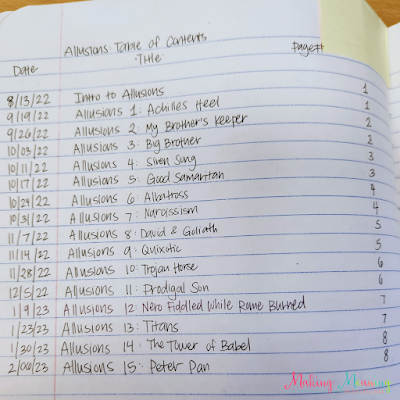 Allusions Table of Contents
Date Title Page#
8/13/22 Intro to Allusions 1
9/19/22 Allusions 1: Achilles Heel 1
9/26/22 Allusions 2: My Brother's Keeper 2
10/03/22 Allusions 3: Big Brother 2
10/11/22 Allusions 4: Siren Song 3
10/17/22 Allusions 5: Good Samaritan 3
10/24/22 Allusions 6: Albatross 4
10/31/22 Allusions 7: Narcissism 4
11/7/22 Allusions 8: David & Goliath 5
11/14/22 Allusions 9: Quixotic 5
11/28/22 Allusions 10: Trojan Horse 6
12/5/22 Allusions 11: Prodigal Son 6
1/9/23 Allusions 12: Nero Fiddled While Rome Burned 7
1/23/23 Allusions 13: Titans 7
1/30/23 Allusions 14: The Tower of Babel 8
2/06/23 Allusions 15: Peter Pan 8
Making Meaning